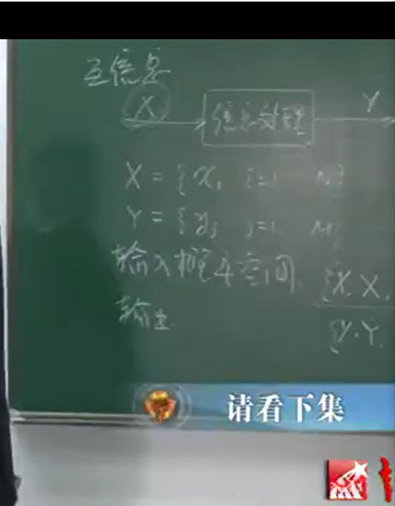 互信息
X 信息处理 Y
X = {x, i=1
Y = {yj j=1
输入概率空间 {X, X,
输出 {Y, Y,
请看下集